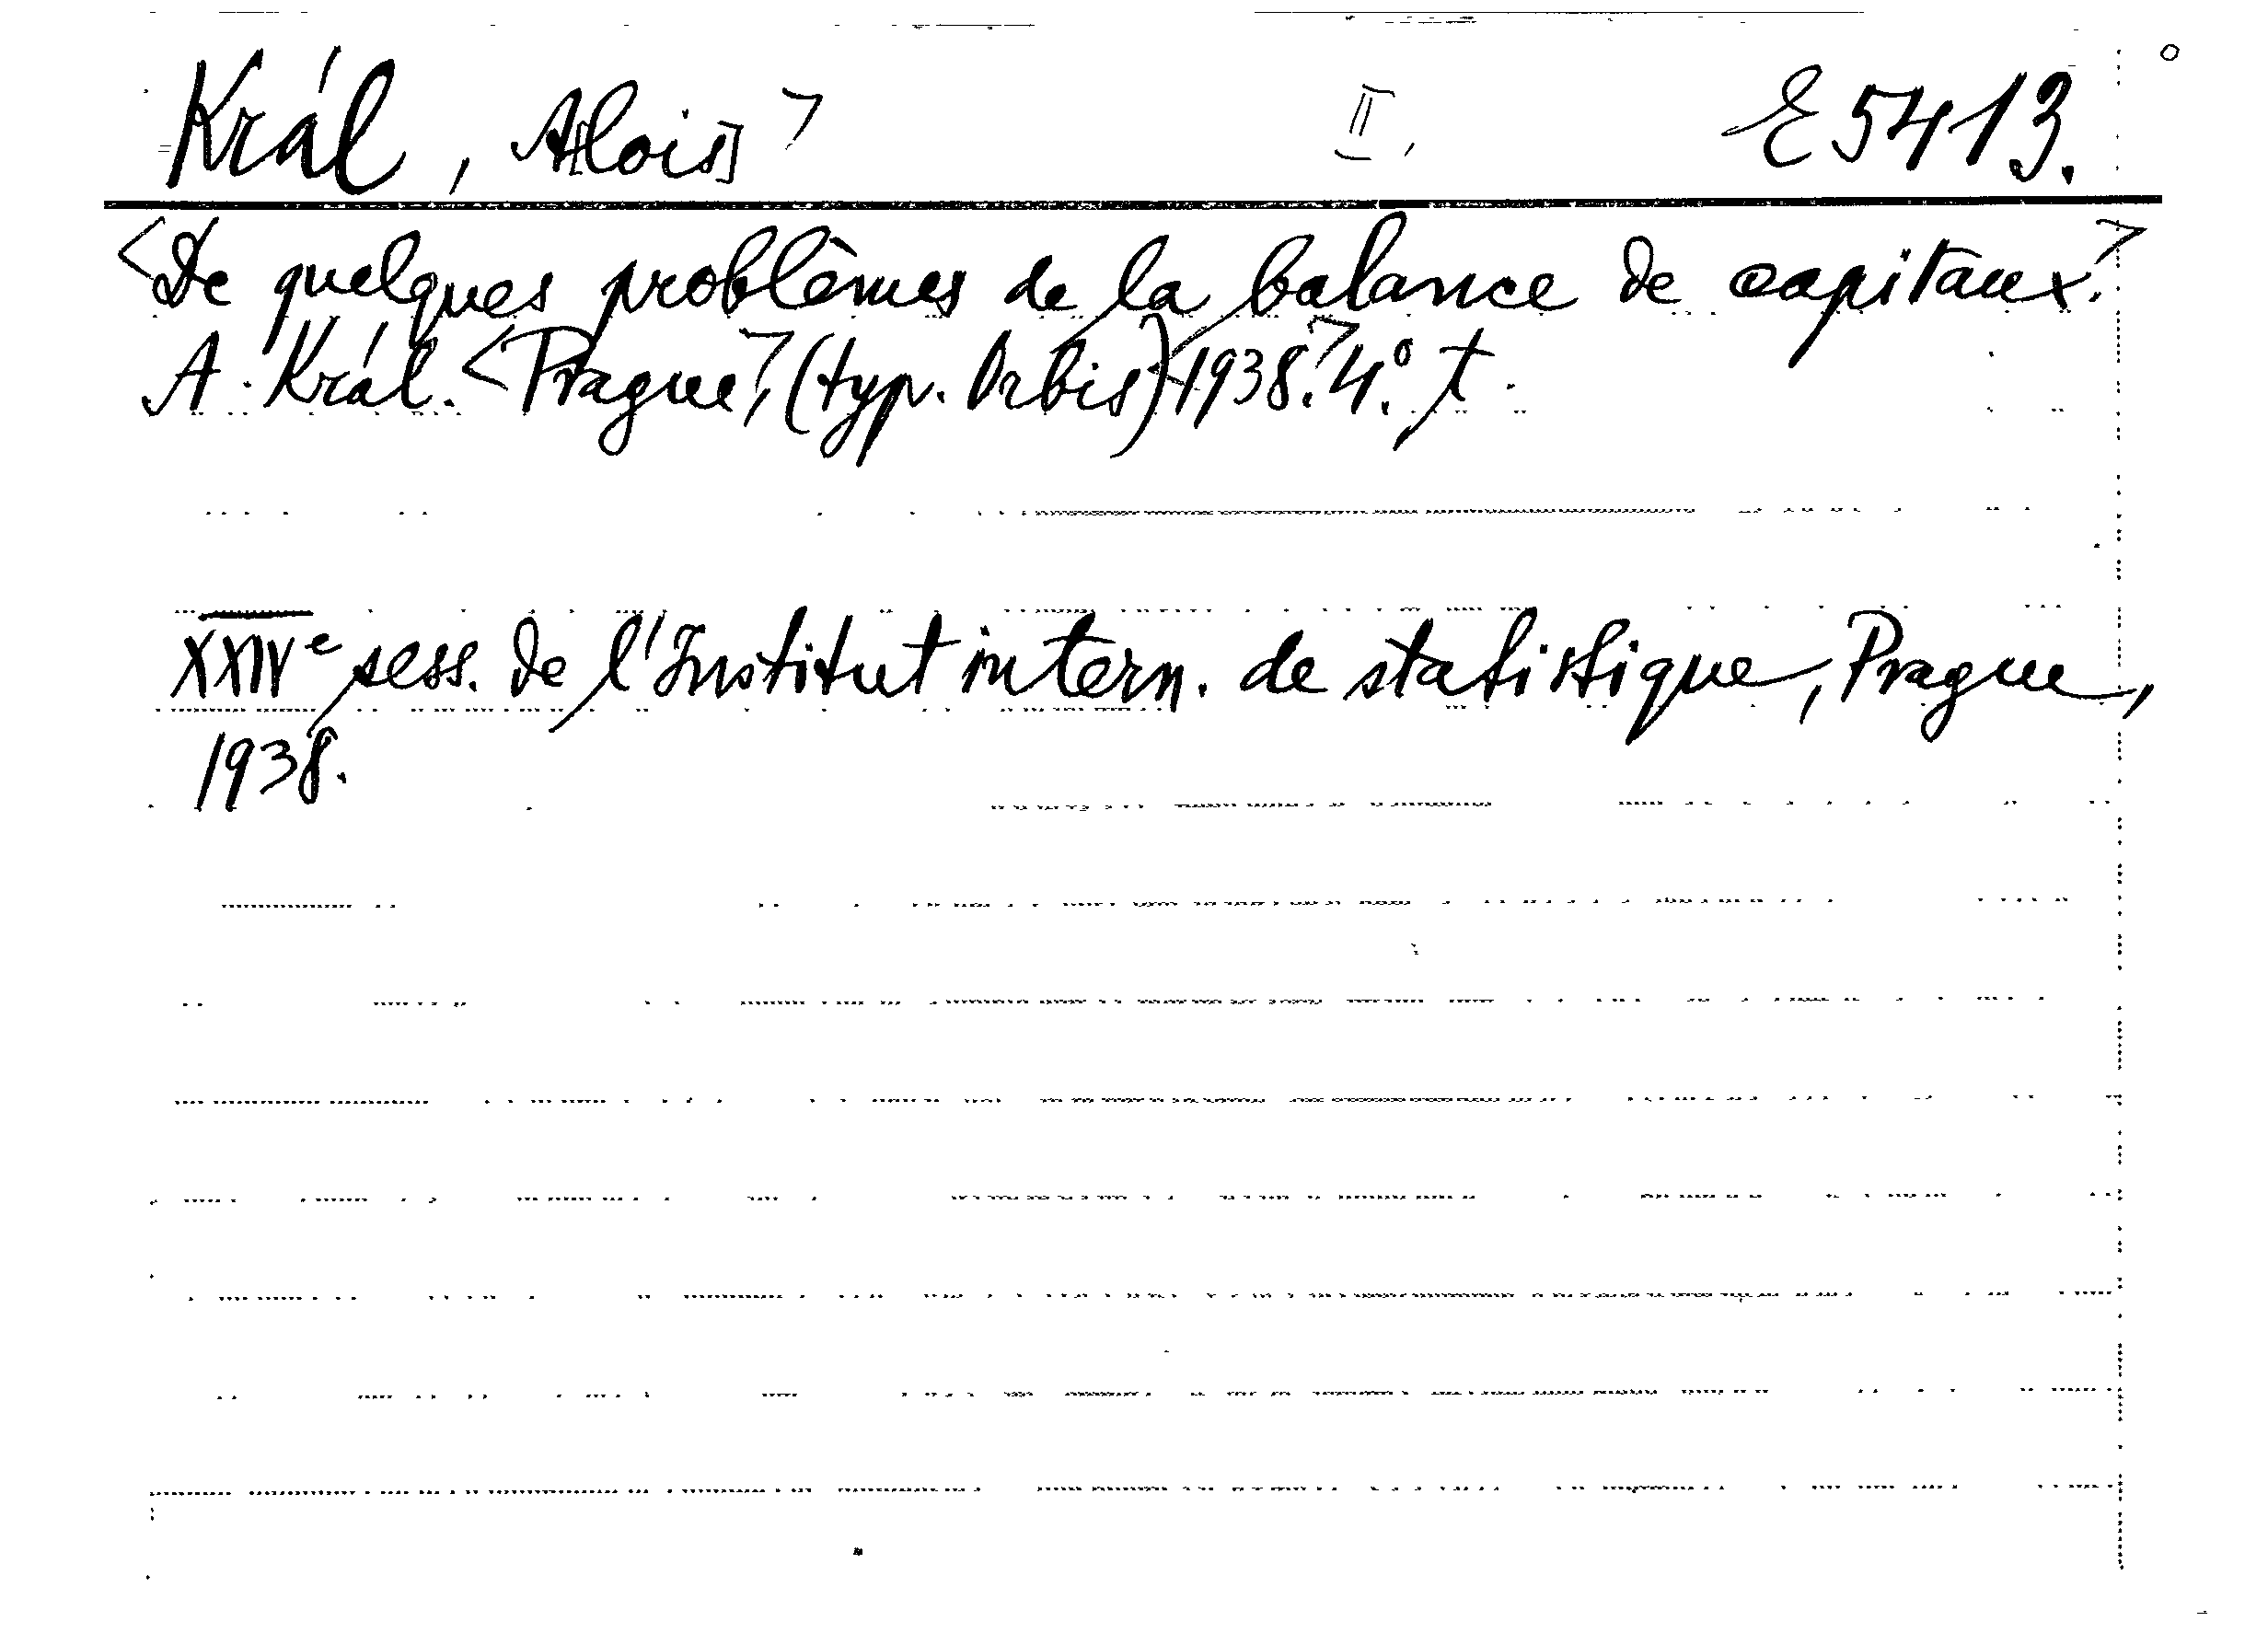 Král, A[lois] II, E 5413.
<De quelques problèmes de la balance de capitaux.>
A. Král. <Prague>, (typ. Orbis) 1938. 4°. t.
XXIVe sess. de l'Institut intern. de statistique, Prague,
1938.